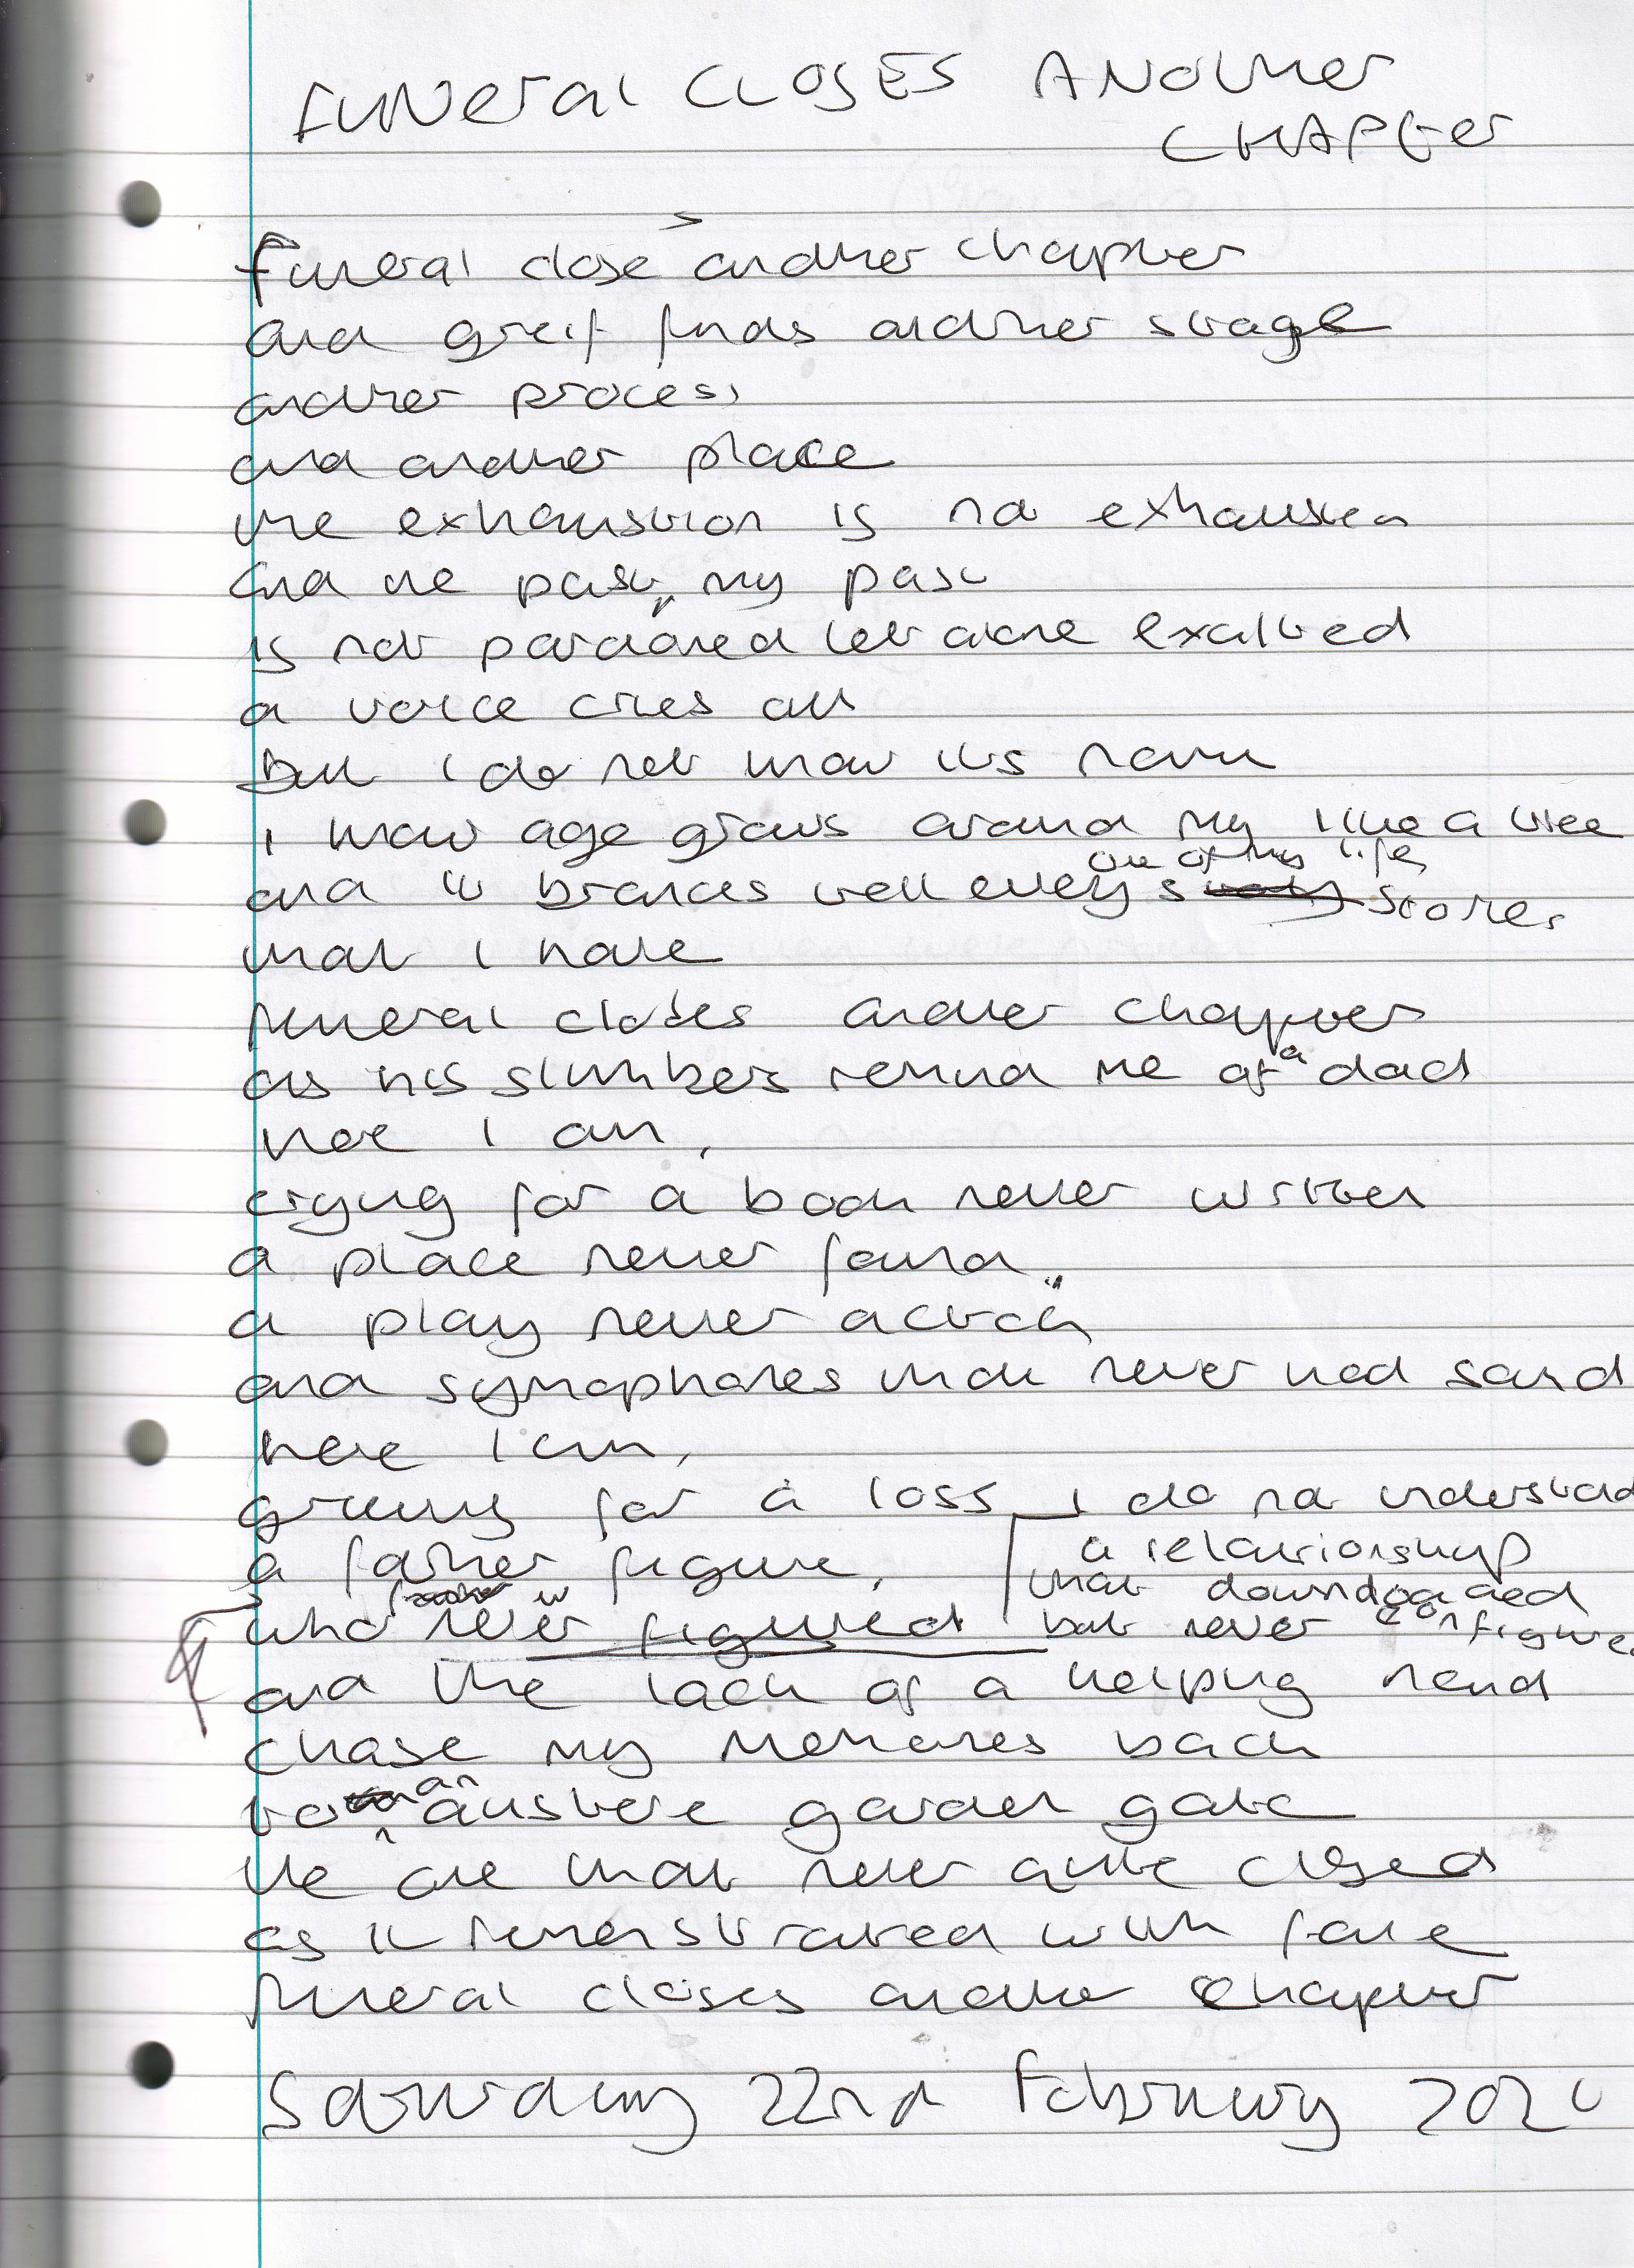 FUNeral CLOSES ANOther
CHAPter
s
Funeral close another chapter
and greif finds another stage
another process
and another place
the exhaustion is not exhausted
and the past, my past
is not pardoned let alone exalted
a voice cries out
but i do not know its name
i know age grows around my like a tree
one of my life
and it brances tell every stories
that i have
funeral closes another chapter
as his slumbers remind me of a dad
here i am,
crying for a book never written
a place never found
a play never acted
and symophones that never had sound
here i am,
grieving for a loss i do not understand
a father figure, a relationship
that
who never figured but never configured
and the lack of a helping hand
chase my memories back
to an austere garden gate
the one that never quite closed
as it remonstrated with fate
funeral closes another chapter
Saturday 22nd February 202